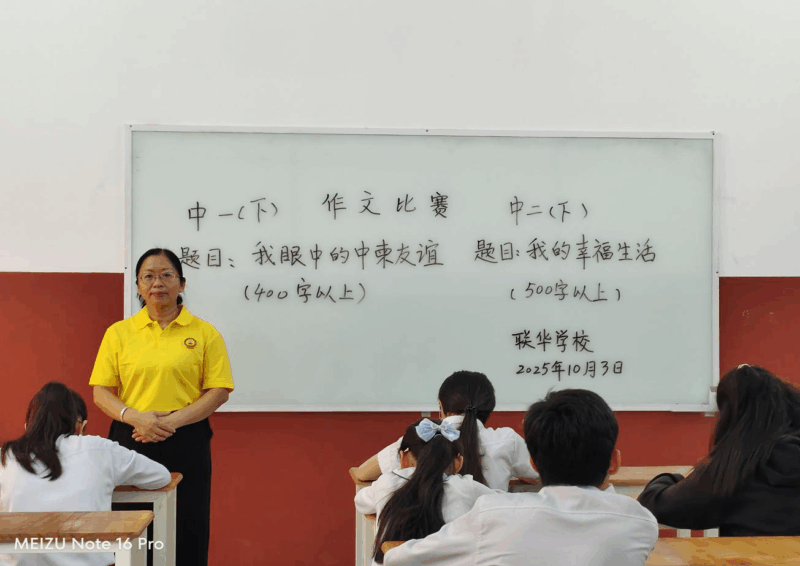 中一(下) 作文比赛 中二(下)
题目：我眼中的中柬友谊 题目：我的幸福生活
(400字以上) (500字以上)
联华学校
2025年10月3日
MEIZU Note 16 Pro